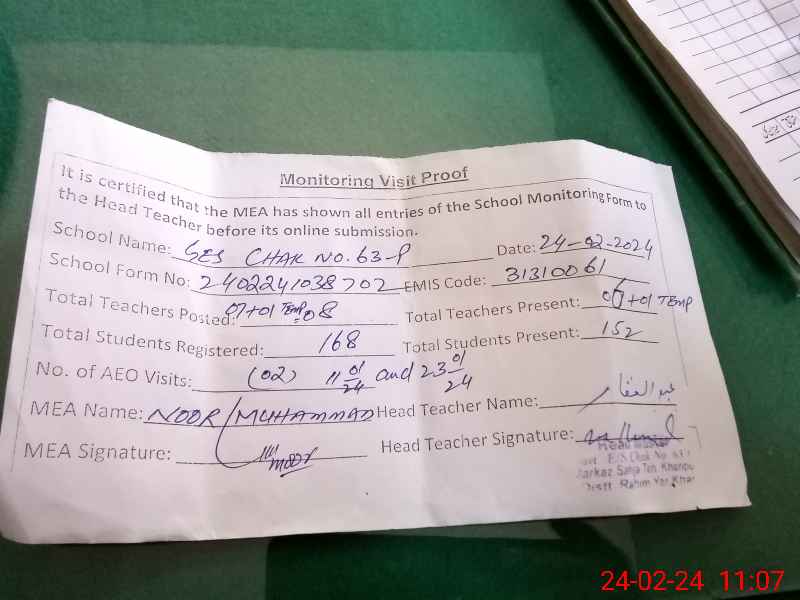 Monitoring Visit Proof
It is certified that the MEA has shown all entries of the School Monitoring Form to
the Head Teacher before its online submission.
School Name: GES CHAK NO. 63-P Date: 24-02-2024
School Form No: 2402241038702 EMIS Code: 31310061
Total Teachers Posted: 07+01 TEMP=08 Total Teachers Present: 06+01 TEMP
Total Students Registered: 168 Total Students Present: 152
No. of AEO Visits: (02) 11 01/24 and 23 01/24
MEA Name: NOOR MUHAMMAD Head Teacher Name: عبدالغفار
MEA Signature: Head Teacher Signature:
Head Master
E/S Chak No
Markaz Sanja Teh. Khanpur
Distt. Rahim Yar Khan
24-02-24 11:07